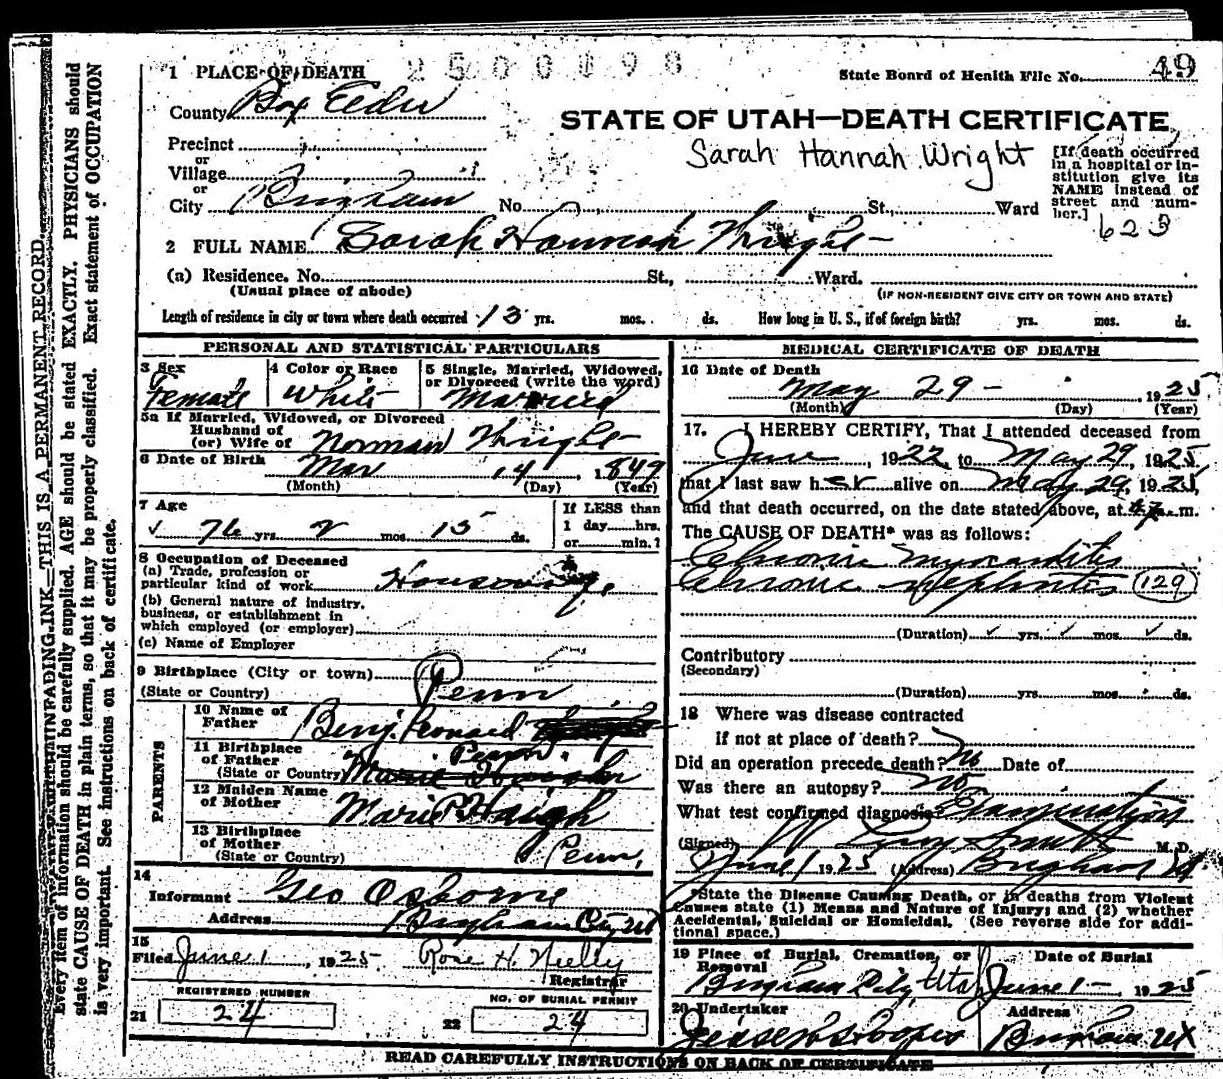 1 PLACE OF DEATH
2500098
State Board of Health File No. 49
County Box Elder
STATE OF UTAH—DEATH CERTIFICATE
Sarah Hannah Wright
Precinct
or
Village
or
City Brigham No. St., Ward
[If death occurred
in a hospital or in-
stitution give its
NAME instead of
street and num-
ber.]
623
2 FULL NAME Sarah Hannah Wright
(a) Residence. No. St., Ward.
(Usual place of abode)
(IF NON-RESIDENT GIVE CITY OR TOWN AND STATE)
Length of residence in city or town where death occurred 13 yrs. mos. ds. How long in U. S., if of foreign birth? yrs. mos. ds.
PERSONAL AND STATISTICAL PARTICULARS
3 Sex
Female
4 Color or Race
White
5 Single, Married, Widowed,
or Divorced (write the word)
Married
5a If Married, Widowed, or Divorced
Husband of
(or) Wife of Norman Wright
6 Date of Birth
Mar 14 1849
(Month) (Day) (Year)
7 Age
76 yrs. 2 mos. 15 ds.
If LESS than
1 day hrs.
or min.?
8 Occupation of Deceased
(a) Trade, profession or
particular kind of work
(b) General nature of industry,
business, or establishment in
which employed (or employer)
(c) Name of Employer
9 Birthplace (City or town)
(State or Country) Penn
PARENTS
10 Name of
Father Benj. Leonard
11 Birthplace
of Father Penn.
(State or Country)
12 Maiden Name
of Mother Marie P. Haigh
13 Birthplace
of Mother
(State or Country) Penn.
14
Informant Geo Osborne
Address Brigham City Ut
15
Filed June 1, 1925 Rose H. Neilly
Registrar
REGISTERED NUMBER
21 24
NO. OF BURIAL PERMIT
22 24
MEDICAL CERTIFICATE OF DEATH
16 Date of Death
May 29 - 1925
(Month) (Day) (Year)
17. I HEREBY CERTIFY, That I attended deceased from
June, 1922, to May 29, 1925
that I last saw her alive on May 29, 1925,
and that death occurred, on the date stated above, at m.
The CAUSE OF DEATH* was as follows:
Chronic Myocarditis
Chronic Nephritis 129
(Duration) yrs. mos. ds.
Contributory
(Secondary)
(Duration) yrs. mos. ds.
18 Where was disease contracted
if not at place of death?
Did an operation precede death? No Date of
Was there an autopsy? No
What test confirmed diagnosis Examination
(Signed) M.D.
June 1 1925 (Address) Brigham Ut
*State the Disease Causing Death, or in deaths from Violent
Causes state (1) Means and Nature of Injury; and (2) whether
Accidental, Suicidal or Homicidal. (See reverse side for addi-
tional space.)
19 Place of Burial, Cremation, or
Removal
Brigham City, Utah
Date of Burial
June 1 - 1925
20 Undertaker
Address
Brigham Ut
READ CAREFULLY INSTRUCTIONS ON BACK OF CERTIFICATE
WITH UNFADING INK—THIS IS A PERMANENT RECORD.
Every item of information should be carefully supplied. AGE should be stated EXACTLY. PHYSICIANS should
state CAUSE OF DEATH in plain terms, so that it may be properly classified. Exact statement of OCCUPATION
is very important. See instructions on back of certificate.